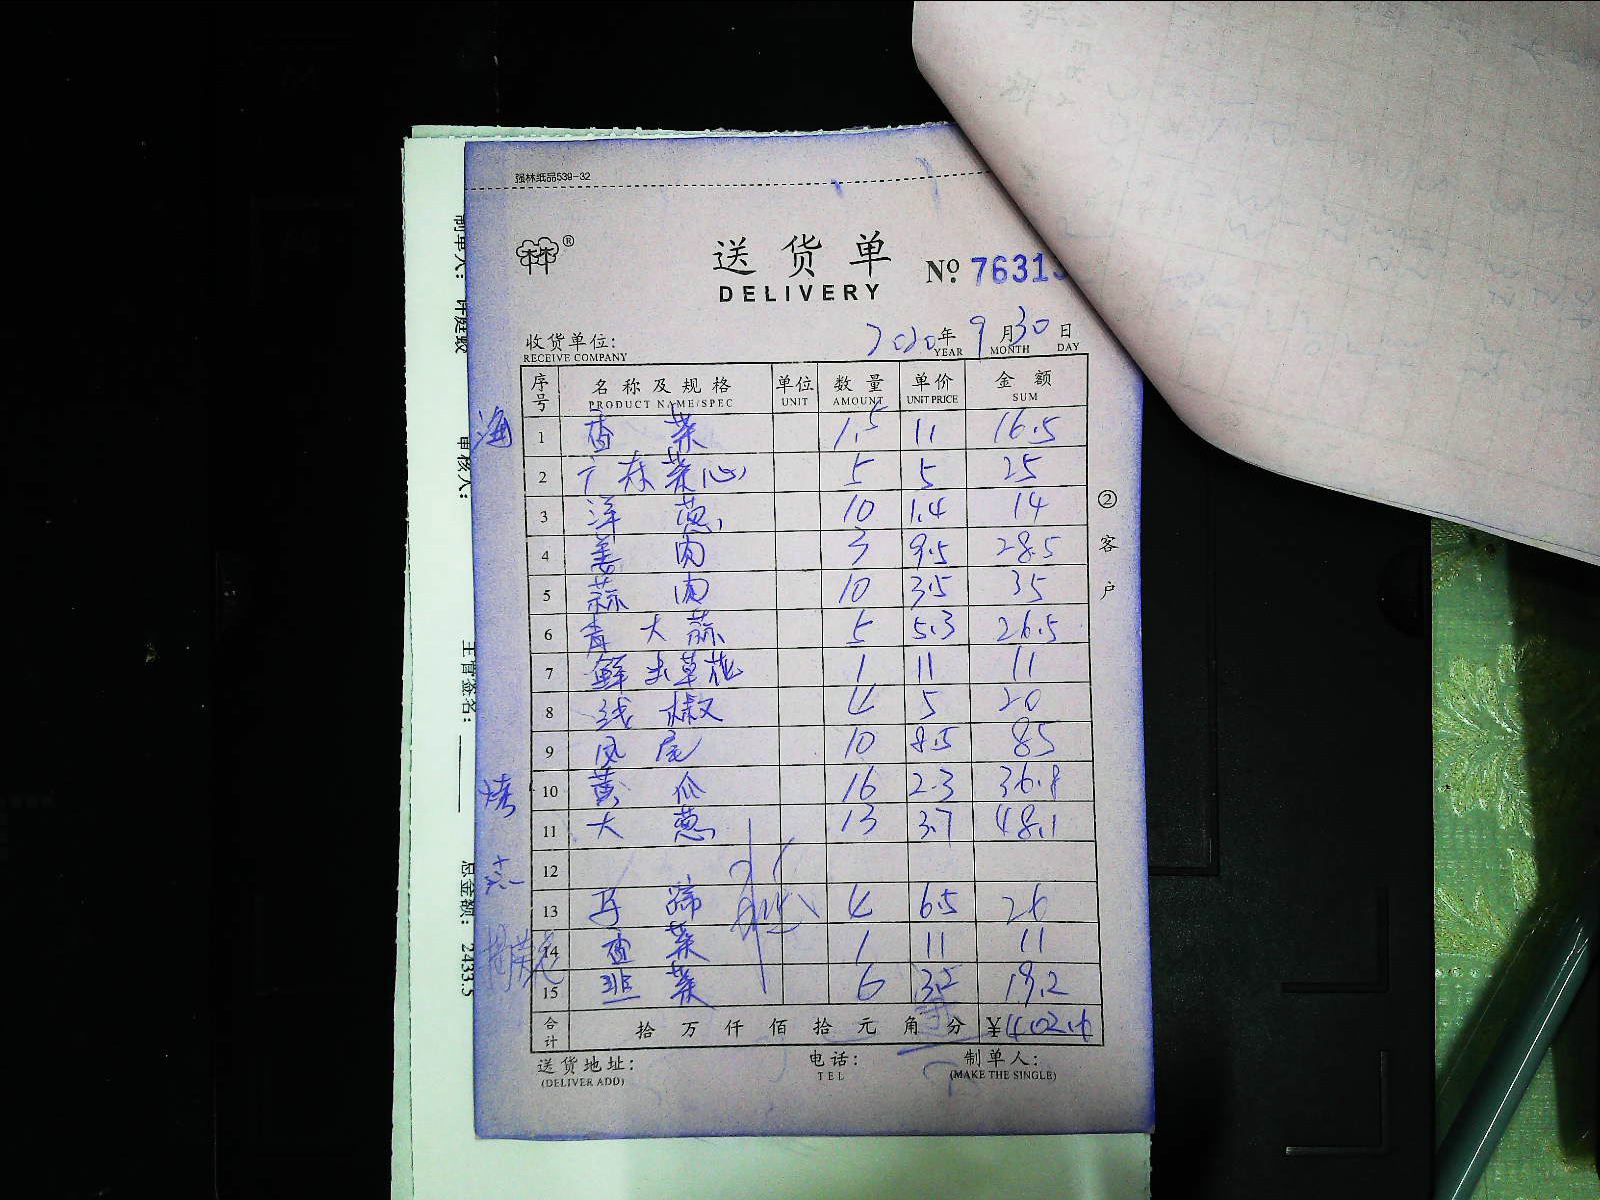 强林纸品539-32
送货单 №. 76313
DELIVERY
2020年 9月30日
YEAR MONTH DAY
收货单位:
RECEIVE COMPANY
序号 名称及规格 单位 数量 单价 金额
PRODUCT NAME/SPEC UNIT AMOUNT UNIT PRICE SUM
海 1 香菜 1.5 11 16.5
2 广东菜心 5 5 25
3 洋葱 10 1.4 14
4 姜肉 3 9.5 28.5
5 蒜肉 10 3.5 35
6 青大蒜 5 5.3 26.5
7 鲜虫草花 1 11 11
8 线椒 4 5 20
9 凤尾 10 8.5 85
烤 10 黄瓜 16 2.3 36.8
11 大葱 13 3.7 48.1
12
13 马蹄 4 6.5 26
14 香菜 1 11 11
15 韭菜 6 3.2 19.2
合计 拾万仟佰拾元角分 ¥402.6
送货地址: 电话: 制单人:
(DELIVER ADD) TEL (MAKE THE SINGLE)
②客户
制单人: 许庭蛟
审核人:
主管签名:
总金额: 2433.5